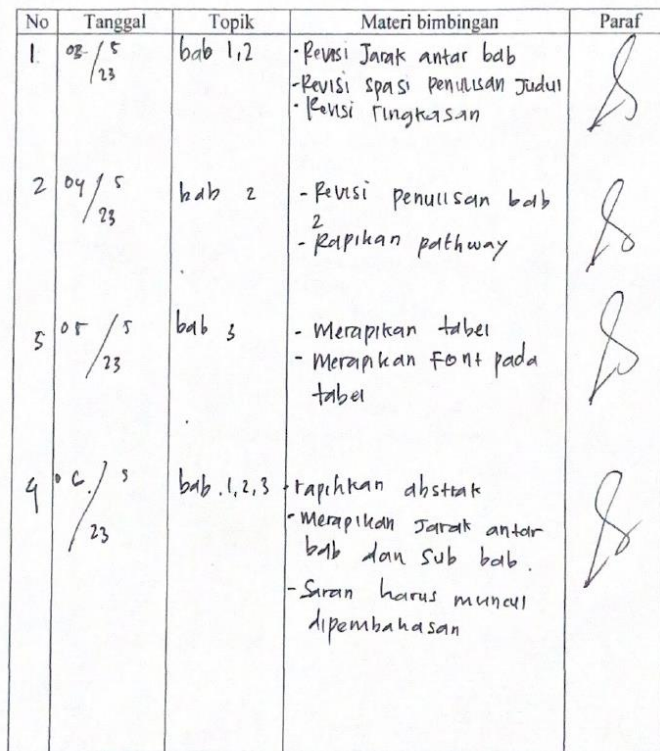 No Tanggal Topik Materi bimbingan Paraf
1. 03/5 bab 1,2 - Revisi Jarak antar bab
23 - Revisi spasi penulisan Judul
- Revisi ringkasan
2 04/5 bab 2 - Revisi penulisan bab
23 2
- Rapikan pathway
3 05/5 bab 3 - Merapikan tabel
23 - Merapikan Font pada
tabel
4 06/5 bab. 1,2,3 - rapihkan abstrak
23 - Merapikan Jarak antar
bab dan sub bab.
- Saran harus muncul
dipembahasan